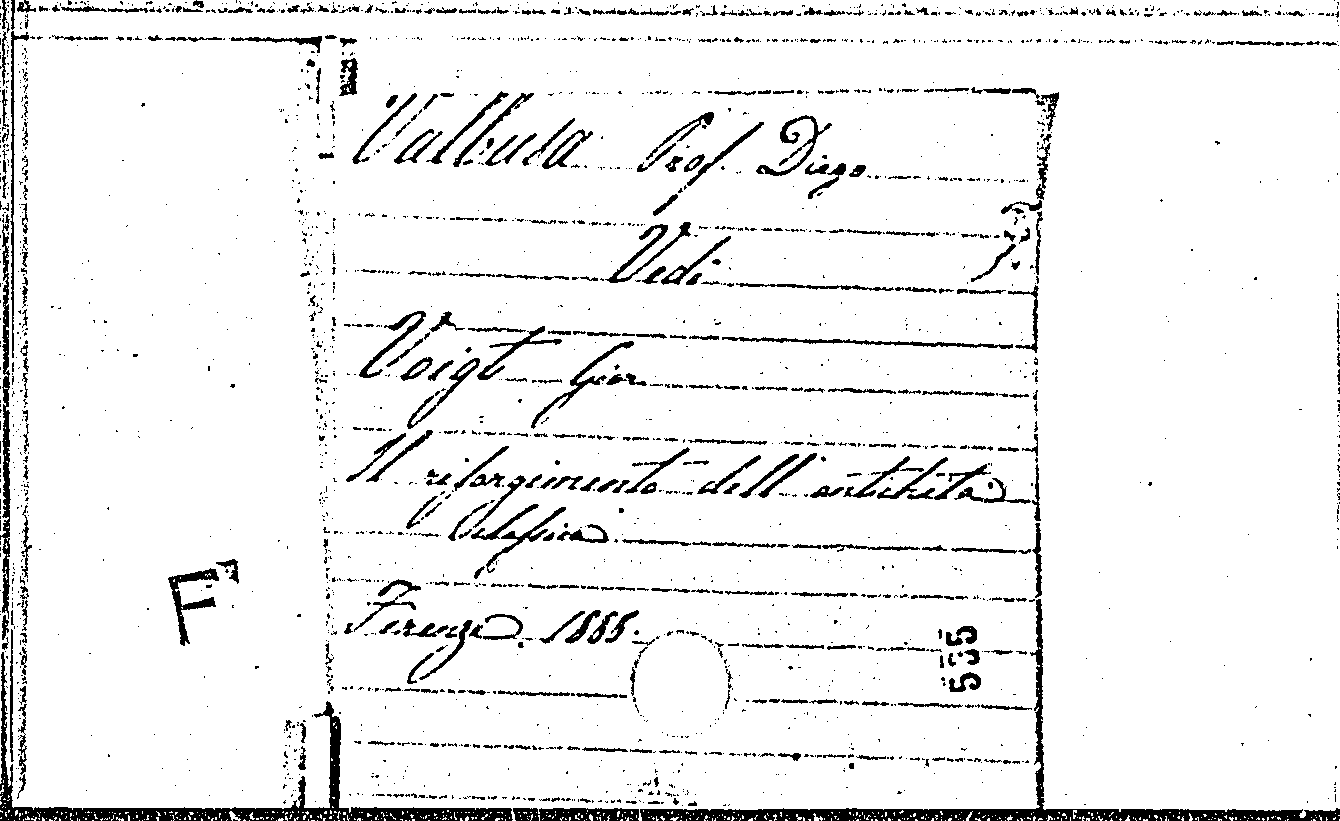 Valbusa Prof. Diego
Vedi
Voigt Gior.
Il risorgimento dell'antichità
classica
Firenze, 1888.
535
F